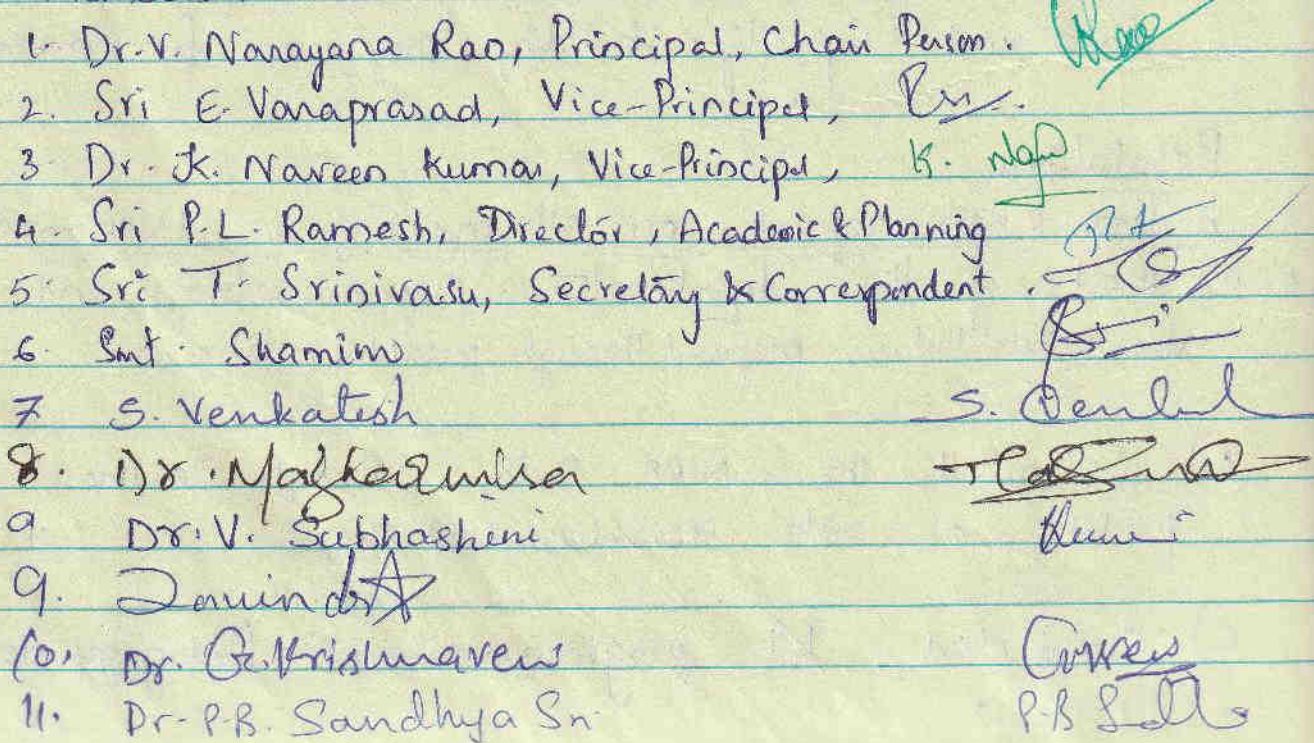 1. Dr. V. Narayana Rao, Principal, Chair Person. Rao
2. Sri E. Varaprasad, Vice-Principal,
3 Dr. K. Naveen Kumar, Vice-Principal, K.
4. Sri P.L. Ramesh, Director, Academic & Planning
5. Sri T. Srinivasu, Secretary & Correspondent.
6. Smt. Shamim
7 S. Venkatesh S.
8. Dr.
9 Dr. V. Subhashini
9.
10. Dr. G. Krishnaveni
11. Dr. P.B. Sandhya Sri P.B